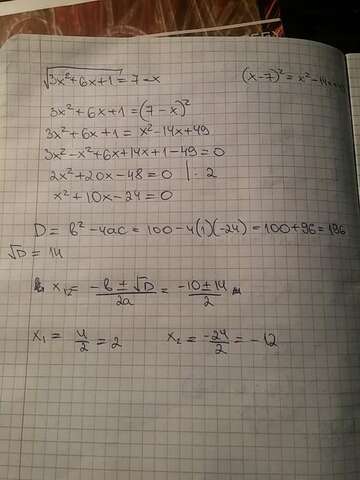 √3x²+6x+1 = 7-x (x-7)² = x² - 14x
3x²+6x+1 = (7-x)²
3x²+6x+1 = x²-14x+49
3x²-x²+6x+14x+1-49=0
2x²+20x-48=0 | : 2
x²+10x-24=0
D = b²-4ac = 100-4(1)(-24) = 100+96 = 196
√D = 14
x₁,₂ = -b ± √D / 2a = -10 ± 14 / 2
x₁ = 4/2 = 2 x₂ = -24/2 = -12